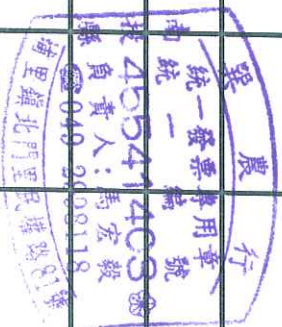 農行
統一發票專用章
統一編號
45541403
負責人：馬宏毅
☎049 2998118
埔里鎮北門里民權路81號
南投縣